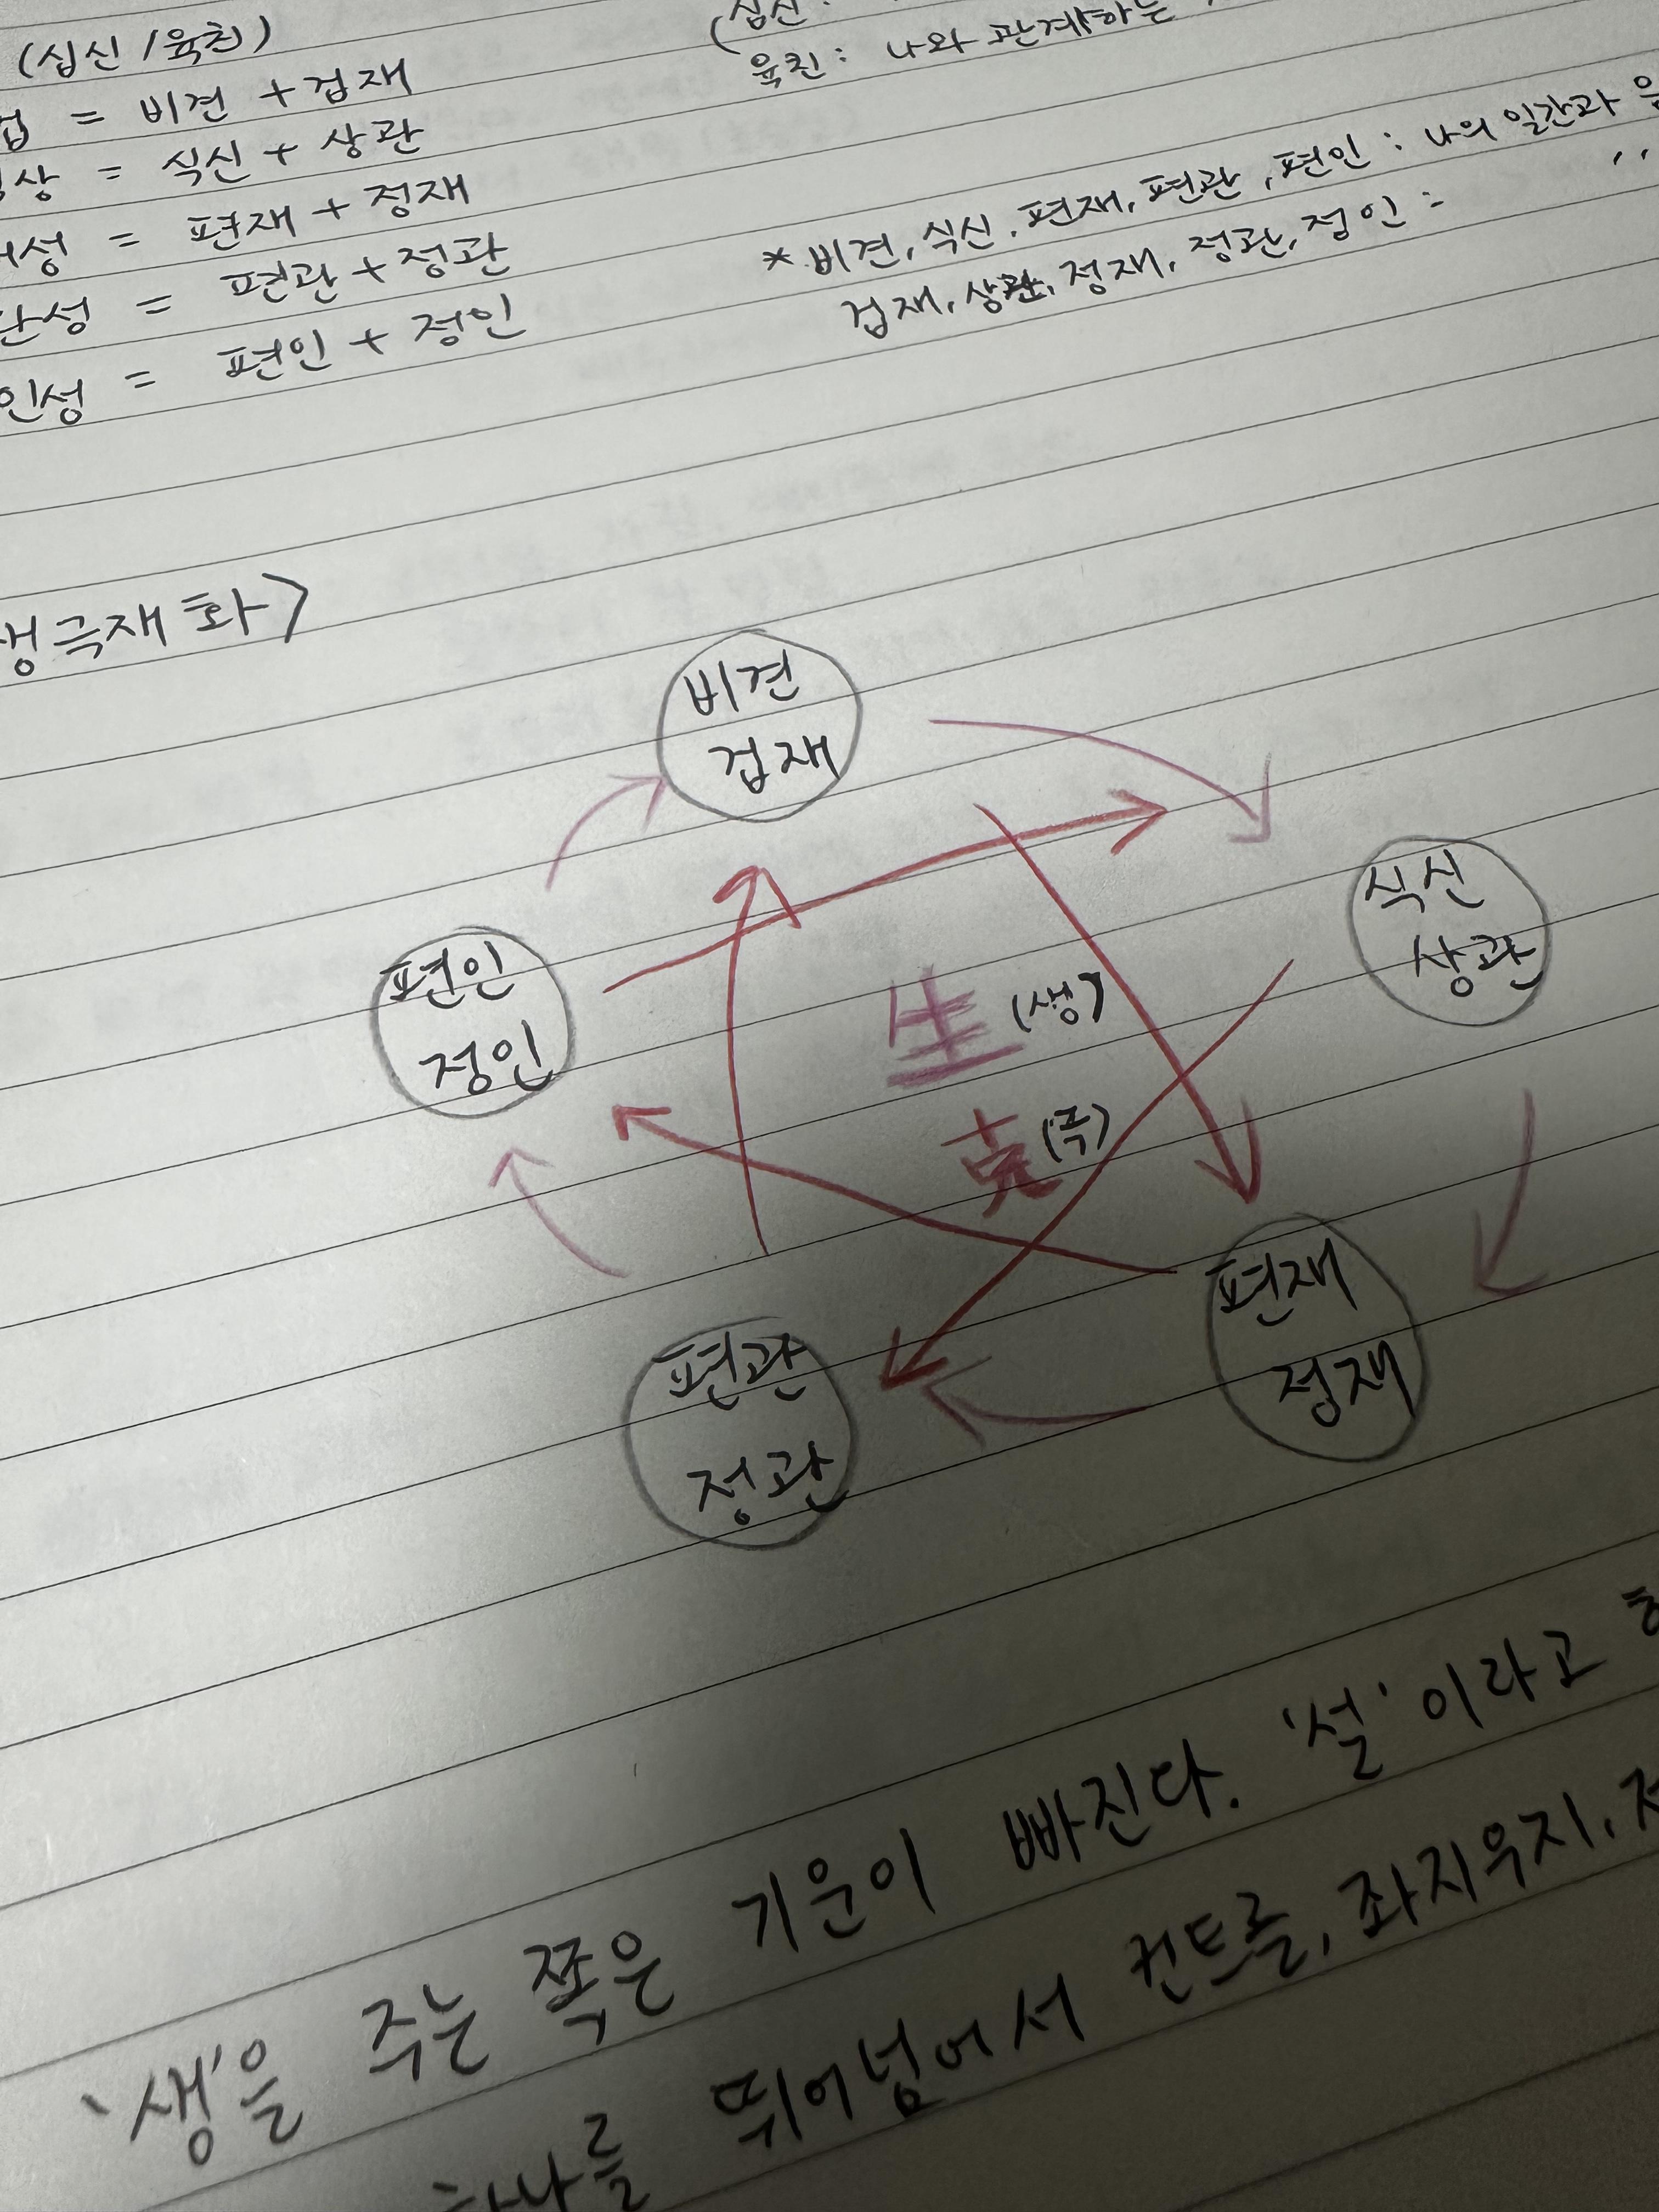 (십신/육친)
겁 = 비견 + 겁재
상 = 식신 + 상관
성 = 편재 + 정재
관성 = 편관 + 정관
인성 = 편인 + 정인
(십신:
육친: 나와 관계하는
* 비견, 식신. 편재, 편관, 편인 : 나의 일간과 음
겁재, 상관, 정재, 정관, 정인 : ''
생극재화>
비견
겁재
식신
상관
편인
정인
生 (생)
克 (극)
편재
정재
편관
정관
'생'을 주는 쪽은 기운이 빠진다. '설'이라고
하나를 뛰어넘어서 컨트롤, 좌지우지,